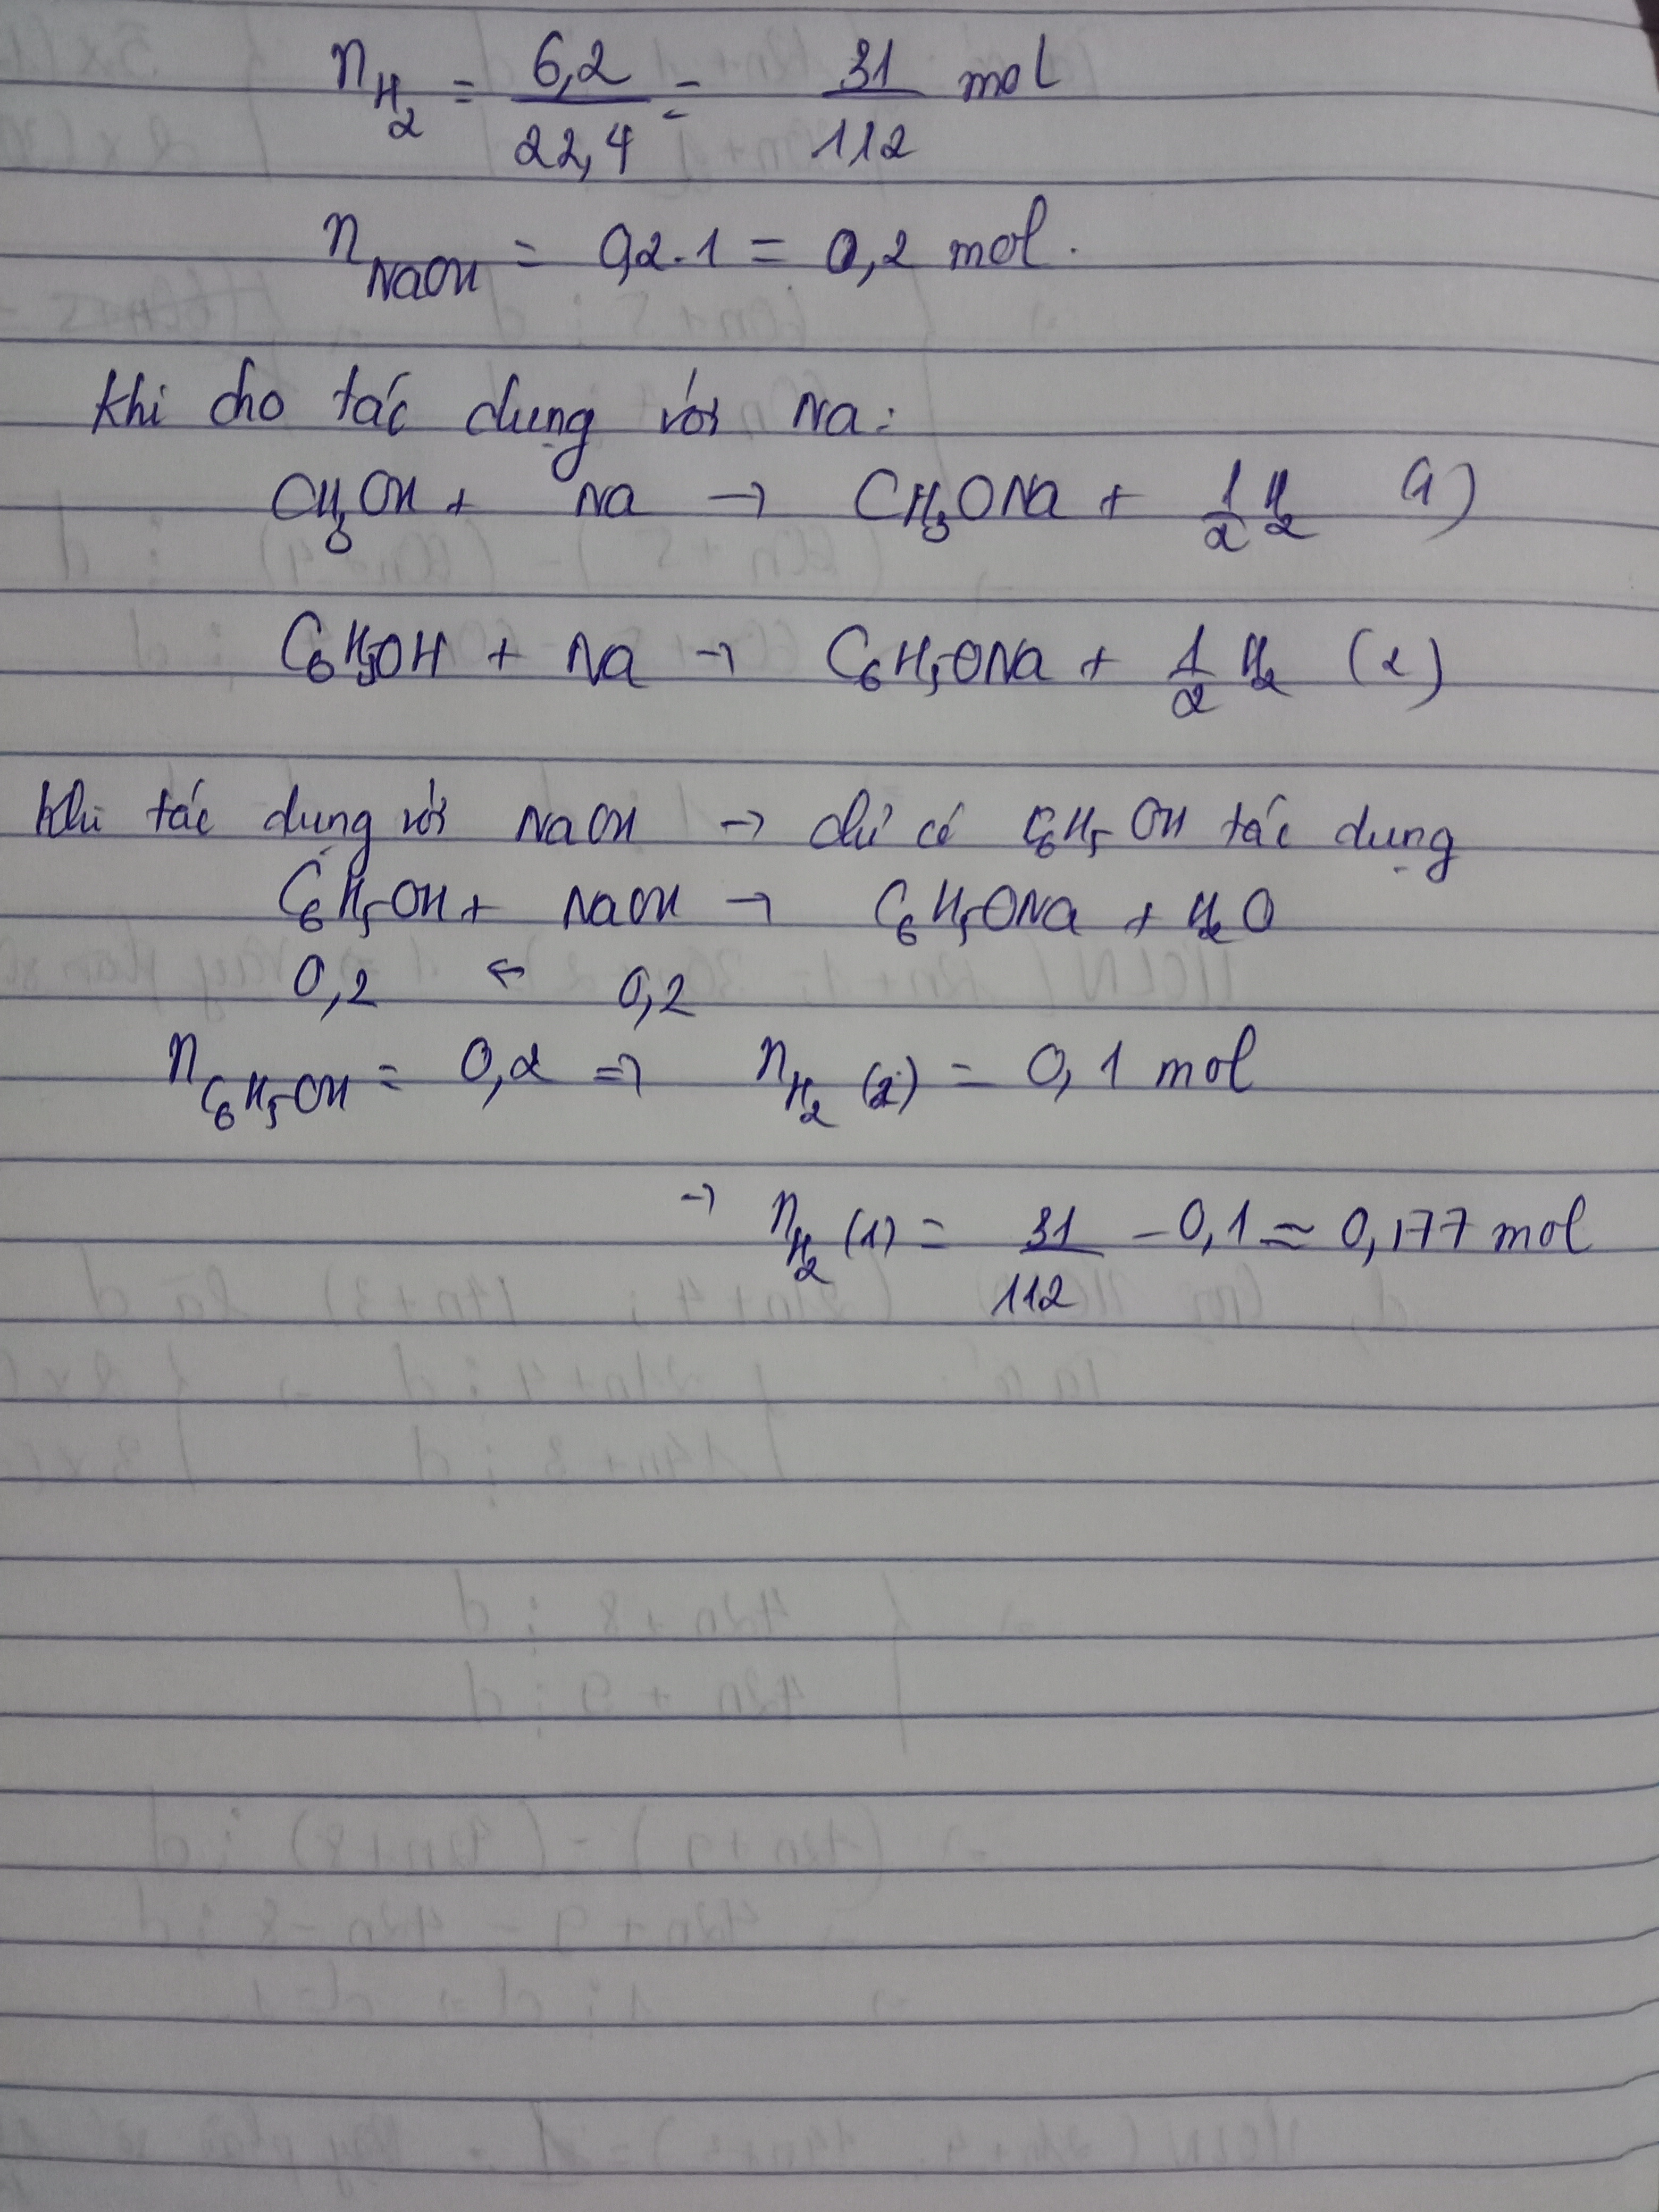 n_H₂ = 6,2/22,4 = 31/112 mol
n_NaOH = 0,2.1 = 0,2 mol.
Khi cho tác dụng với Na:
CH₃OH + Na → CH₃ONa + 1/2 H₂ (1)
C₆H₅OH + Na → C₆H₅ONa + 1/2 H₂ (2)
Khi tác dụng với NaOH → chỉ có C₆H₅OH tác dụng
C₆H₅OH + NaOH → C₆H₅ONa + H₂O
0,2 ← 0,2
n_C₆H₅OH = 0,2 ⇒ n_H₂ (2) = 0,1 mol
→ n_H₂ (1) = 31/112 - 0,1 ≈ 0,177 mol